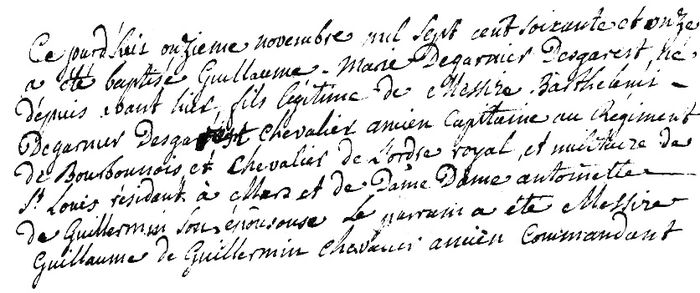 Ce jourd'huy onzieme novembre mil sept cent soixante et onze
a été baptisé Guillaume - Marie Degarnier Desgarest, né
depuis avant hier, fils légitime de Messire Barthelemi -
Degarnier Desgarest Chevalier ancien Capitaine au Régiment
de Bourbonnois et Chevalier de L'ordre royal et militaire de
St Louis résidant à Mars et de Dame Dame antoinette
de Guillermin Son épousouse Le parrain a été Messire
Guillaume de Guillermin Chevalier ancien Commandant